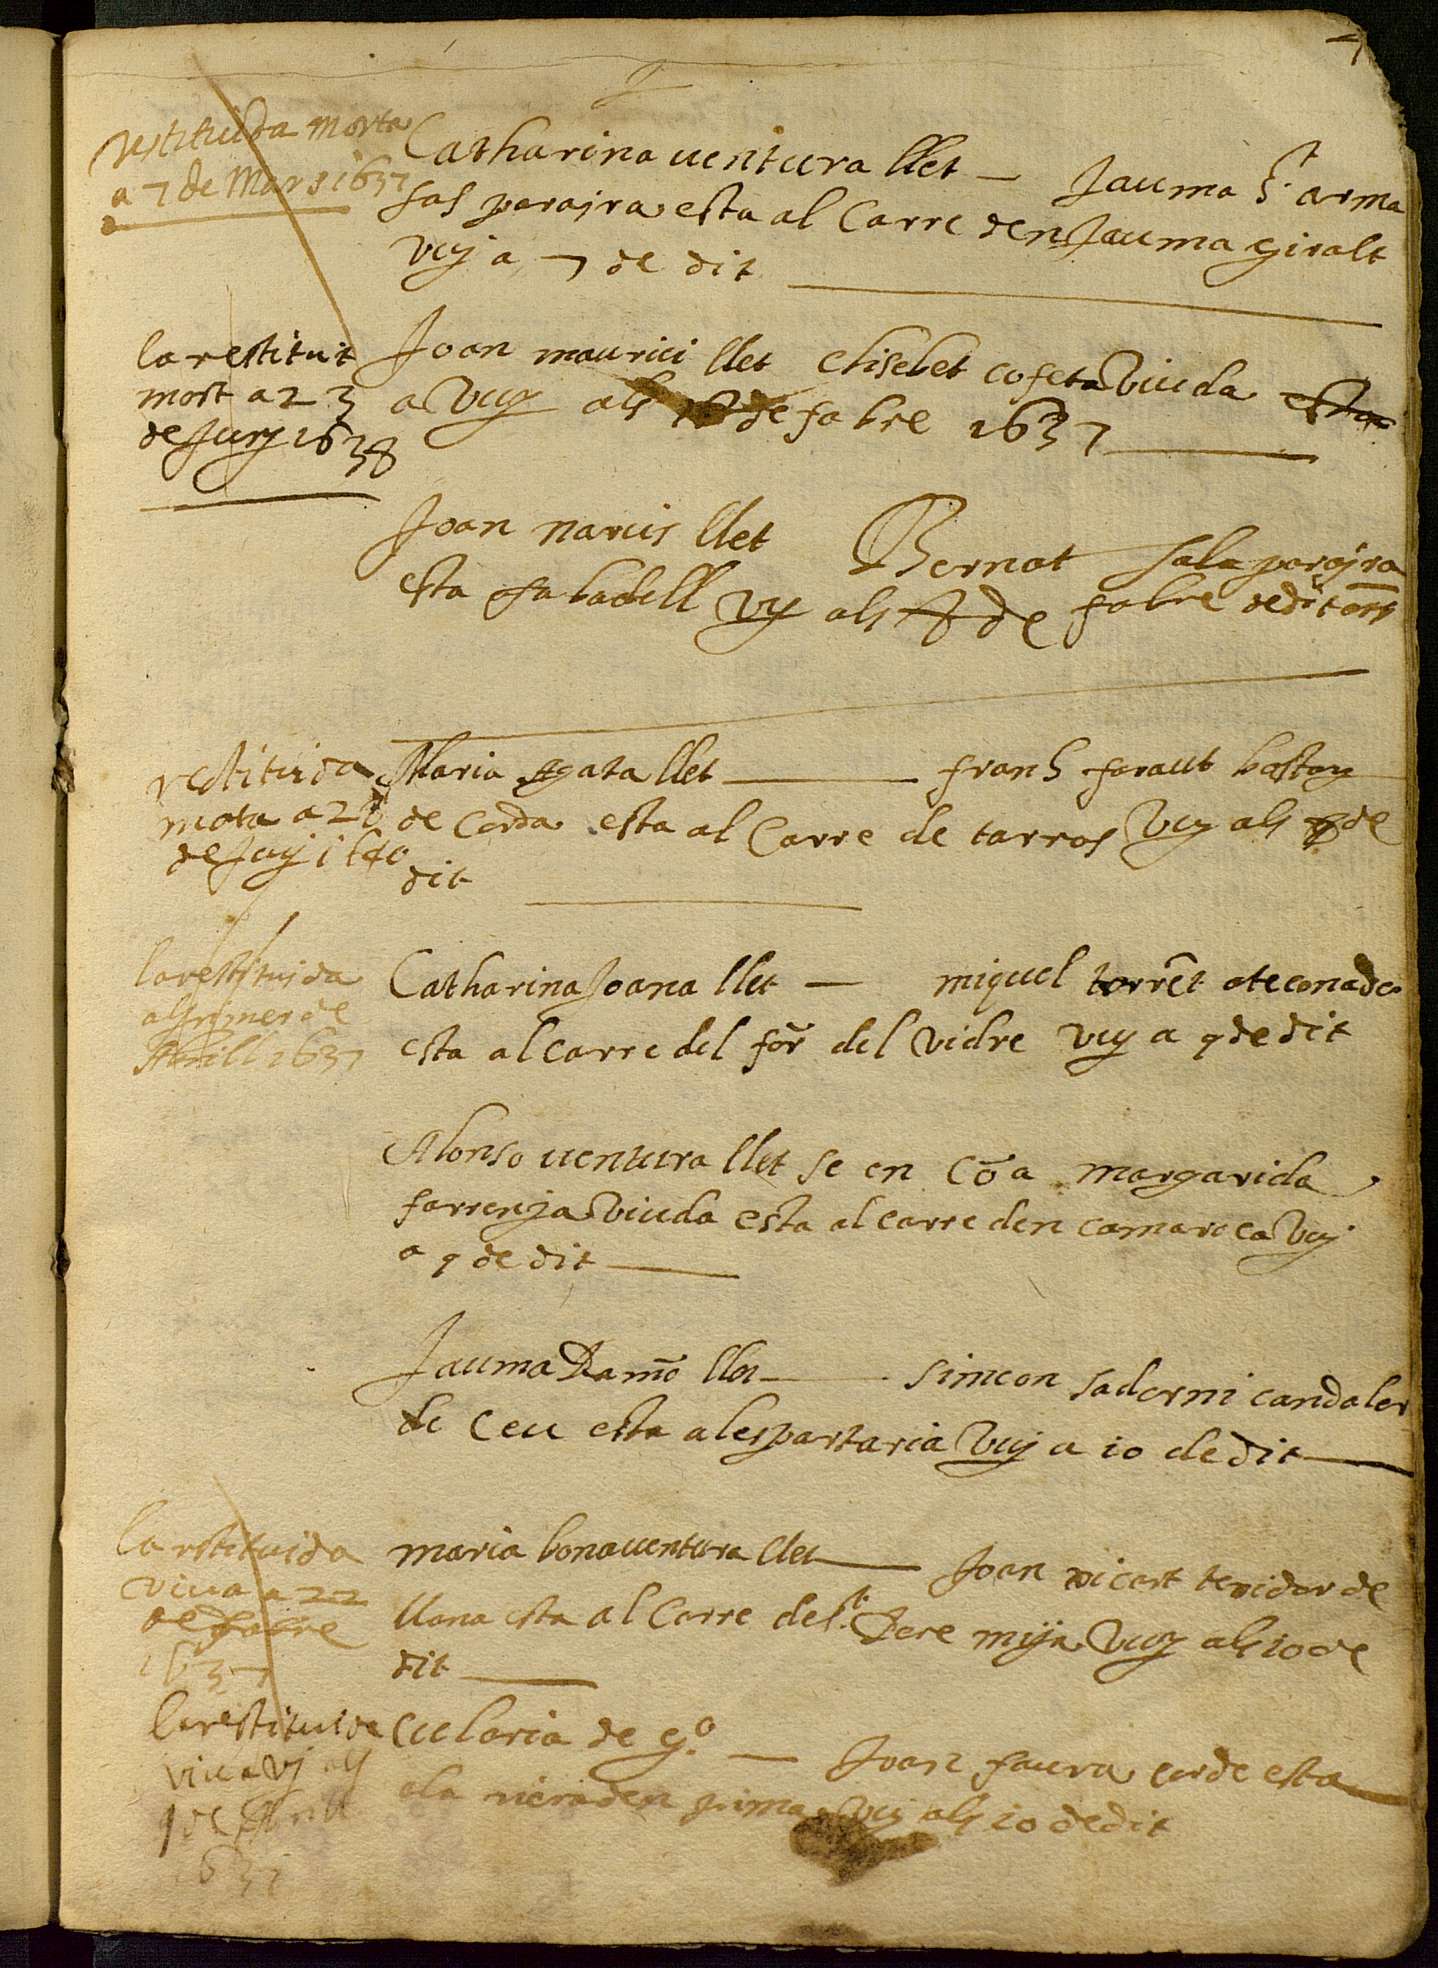 restituida morta
a 7 de Mars 1637
Catharina uentura llet — Jauma St arma
sas parajra esta al Carre den Jauma giralt
vuj a 7 de dit
la restituit
mort a 23
de Juny 1638
Joan maurici llet elisebet cofeta Viuda esta
a Vuy als de fabre 1637
Joan narcis llet Bernat sala parajra
esta sabadell vy als 8 de fabre dedit
restituida
mota a 28
de Juy 1640
Maria Agata llet — frans faraut bastay
de Corda esta al Carre de tarros Vuy als 8 de
dit
la restituida
al primer de
Abrill 1637
Catharina Joana llet — miquel torrēt
esta al carre del for del vidre vuy a 9 de dit
Alonso uentura llet se en Cōa margarida
farrenja Viuda esta al carre den camaro ca Vuj
a 9 de dit
Jauma Ramō llet — simeon saderni candaler
de ceu esta a lespartaria Vuj a 10 de dit
la restituida
viua a 22
de fabre
1637
maria bonauentura llet — Joan ricart texidor de
llana esta al Carre de St Pere mija Vuy als 10 de
dit
la restituida
viua vj als
9 de Abrill
1637
Eularia de go — Joan faura corde esta
a la riera den prima Vuj als 10 de dit